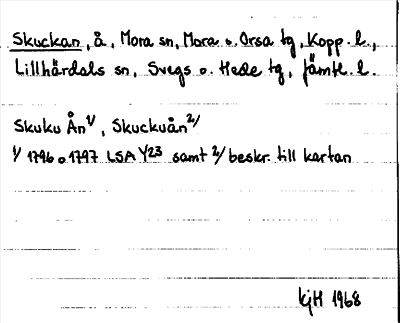 Skuckan, å, Mora sn, Mora o. Orsa tg, Kopp. l.,
Lillhärdals sn, Svegs o. Hede tg, Jämtl. l.
Skuku Ån 1/, Skuckuån 2/
1/ 1796 o 1797 LSA Y23 samt 2/ beskr. till kartan
kjH 1968